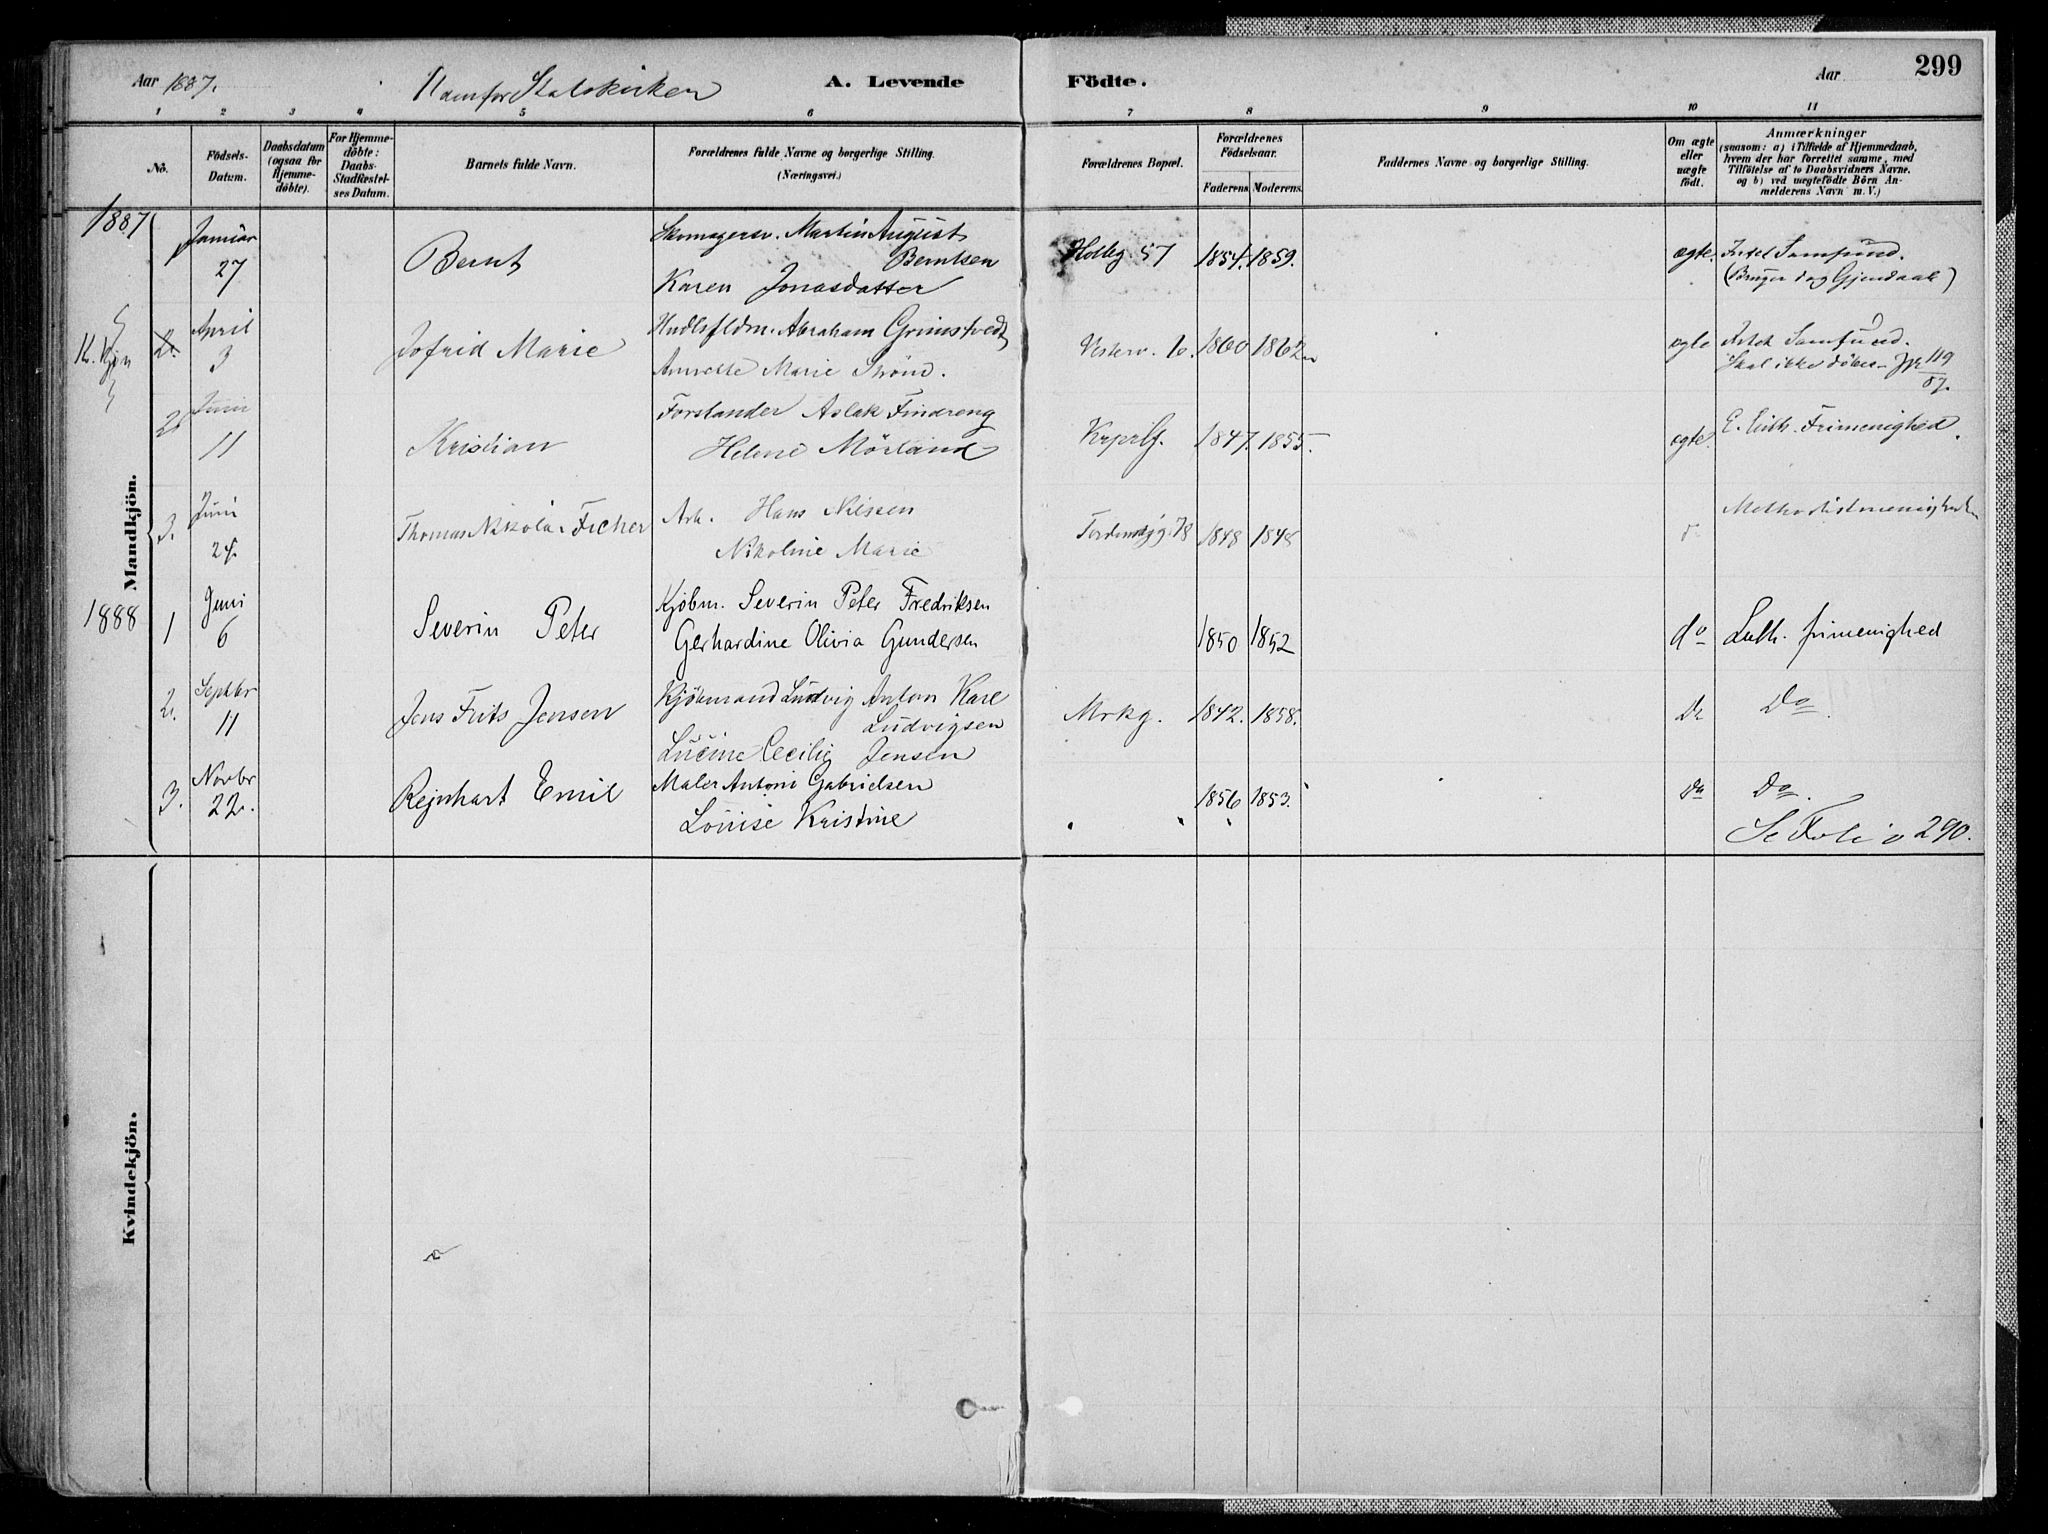 299
Aar 1887. Udenfor Statskirken A. Levende Födte. Aar
1 2 3 4 5 6 7 8 9 10 11
No.
Födsels-Datum.
Daabsdatum (ogsaa for Hjemme-döbte).
For Hjemme-döbte: Daabs-Stadfæstel-ses Datum.
Barnets fulde Navn.
Forældrenes fulde Navne og borgerlige Stilling. (Næringsvei.)
Forældrenes Bopæl.
Forældrenes Födselsaar.
Faderens. Moderens.
Faddernes Navne og borgerlige Stilling.
Om ægte eller uægte födt.
Anmærkninger
(saasom: a) i Tilfælde af Hjemmedaab,
hvem der har forrettet samme, med
Tilföielse af to Daabsvidners Navne.
og b) ved uægtefödte Börn An-
melderens Navn m. V.)
Mandkjön.
1887
Januar 27 Bernt Skomagersv. Martin August Berntsen
Karen Jonasdatter
Holbg. 57 1854. 1859. ægte. Intet Samfund.
(Bruger dog Gjendaab)
K. Kjøn 2. April 3 Jofrid Marie Hndlsfldm. Abraham Grimstvedt
Annette Marie Strøm.
Vesterv. 1860 1862 ægte Intet Samfund.
Skal ikke döbes 119
87.
2 Juni 11 Kristian Forstander Aslak Findreng
Helene Mörland
1847. 1855. ægte. E. Luth. Frimenighed.
3. Juni 24. Thomas Nikolai Ficher Arb. Hans Nilssen
Nikoline Marie
1848 1848 Methodistmenigheden
1888
1 Juni 6 Severin Peter Kjöbm. Severin Peter Fredriksen
Gerhardine Olivia Gundersen
1850 1852 do Luth. frimenighed
2. Septbr 11 Jens Frits Jensen Kjöbmand Ludvig Anton Karl Ludvigsen
Lucine Cecilie Jensen
Mrkg. 1842. 1858. Do Do.
3. Novbr 22. Rejnhart Emil Maler Antoni Gabrielsen
Louise Kristine
1856 1853. Do Do.
Se Folio 290.
Kvindekjön.